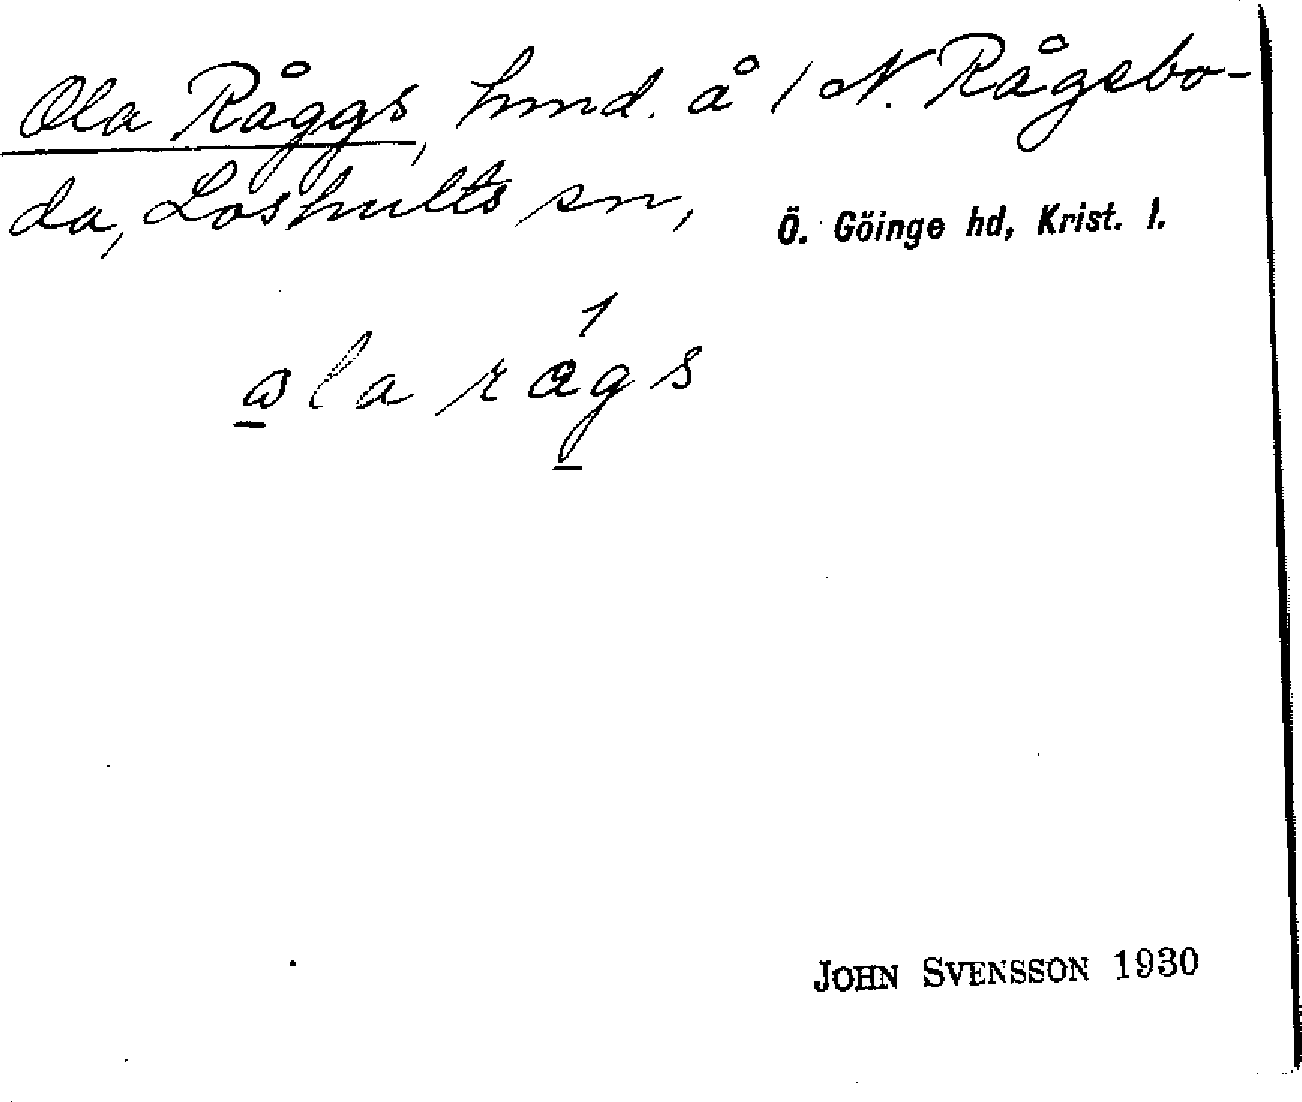 Ola Råggs, hmd. å 1 N. Rågebo-
da, Loshults sn, Ö. Göinge hd, Krist. l.
JOHN SVENSSON 1930